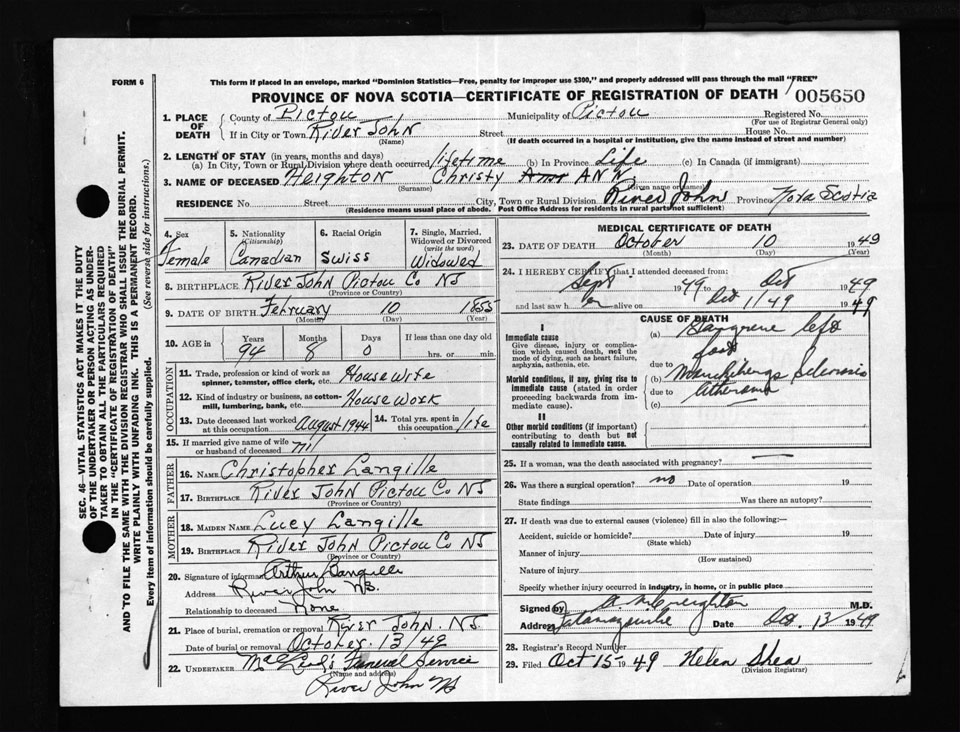 FORM 6
This form if placed in an envelope, marked "Dominion Statistics—Free, penalty for improper use $300," and properly addressed will pass through the mail "FREE"
PROVINCE OF NOVA SCOTIA—CERTIFICATE OF REGISTRATION OF DEATH
005650
1. PLACE OF DEATH
County of Pictou Municipality of Pictou Registered No.
(For use of Registrar General only)
If in City or Town River John Street House No.
(Name) (If death occurred in a hospital or institution, give its name instead of street and number)
2. LENGTH OF STAY (in years, months and days)
(a) In City, Town or Rural Division where death occurred lifetime (b) In Province Life (c) In Canada (if immigrant)
3. NAME OF DECEASED Heighton Christy Ann
(Surname) (Given name or names)
RESIDENCE No. Street City, Town or Rural Division River John Province Nova Scotia
(Residence means usual place of abode. Post Office Address for residents in rural parts not sufficient)
4. Sex Female
5. Nationality (Citizenship) Canadian
6. Racial Origin Swiss
7. Single, Married, Widowed or Divorced (write the word) Widowed
8. BIRTHPLACE River John Pictou Co NS
(Province or Country)
9. DATE OF BIRTH February 10 1855
(Month) (Day) (Year)
10. AGE in Years Months Days If less than one day old
94 8 0 hrs. or min.
OCCUPATION
11. Trade, profession or kind of work as spinner, teamster, office clerk, etc. Housewife
12. Kind of industry or business, as cotton-mill, lumbering, bank, etc. Housework
13. Date deceased last worked at this occupation August 1944
14. Total yrs. spent in this occupation life
15. If married give name of wife or husband of deceased nil
FATHER
16. NAME Christopher Langille
17. BIRTHPLACE River John Pictou Co NS
(Province or Country)
MOTHER
18. MAIDEN NAME Lucy Langille
19. BIRTHPLACE River John Pictou Co NS
(Province or Country)
20. Signature of informant Arthur Langille
Address River John NS.
Relationship to deceased None
21. Place of burial, cremation or removal River John. NS.
Date of burial or removal October 13/49
22. UNDERTAKER Funeral Service
(Name and address)
River John NS
MEDICAL CERTIFICATE OF DEATH
23. DATE OF DEATH October 10 1949
(Month) (Day) (Year)
24. I HEREBY CERTIFY that I attended deceased from:
Sept 1949 to Oct 1949
and last saw h er alive on Oct 11/49 1949
CAUSE OF DEATH
I
Immediate cause
Give disease, injury or complication which caused death, not the mode of dying, such as heart failure, asphyxia, asthenia, etc.
(a) Gangrene left foot
due to
Morbid conditions, if any, giving rise to immediate cause (stated in order proceeding backwards from immediate cause).
(b) Sclerosis
due to Atheroma
(c)
II
Other morbid conditions (if important) contributing to death but not causally related to immediate cause.
25. If a woman, was the death associated with pregnancy? —
26. Was there a surgical operation? no Date of operation 19
State findings Was there an autopsy?
27. If death was due to external causes (violence) fill in also the following:—
Accident, suicide or homicide? Date of injury 19
(State which)
Manner of injury
(How sustained)
Nature of injury
Specify whether injury occurred in industry, in home, or in public place
Signed by Creighton M.D.
Address Tatamagouche Date Oct. 13 1949
28. Registrar's Record Number
29. Filed Oct 15 1949 Helen Shea
(Division Registrar)
SEC. 46 - VITAL STATISTICS ACT MAKES IT THE DUTY
OF THE UNDERTAKER OR PERSON ACTING AS UNDER-
TAKER TO OBTAIN ALL THE PARTICULARS REQUIRED
IN THE "CERTIFICATE OF REGISTRATION OF DEATH"
AND TO FILE THE SAME WITH THE DIVISION REGISTRAR WHO SHALL ISSUE THE BURIAL PERMIT.
WRITE PLAINLY WITH UNFADING INK. THIS IS A PERMANENT RECORD.
Every item of information should be carefully supplied. (See reverse side for instructions.)